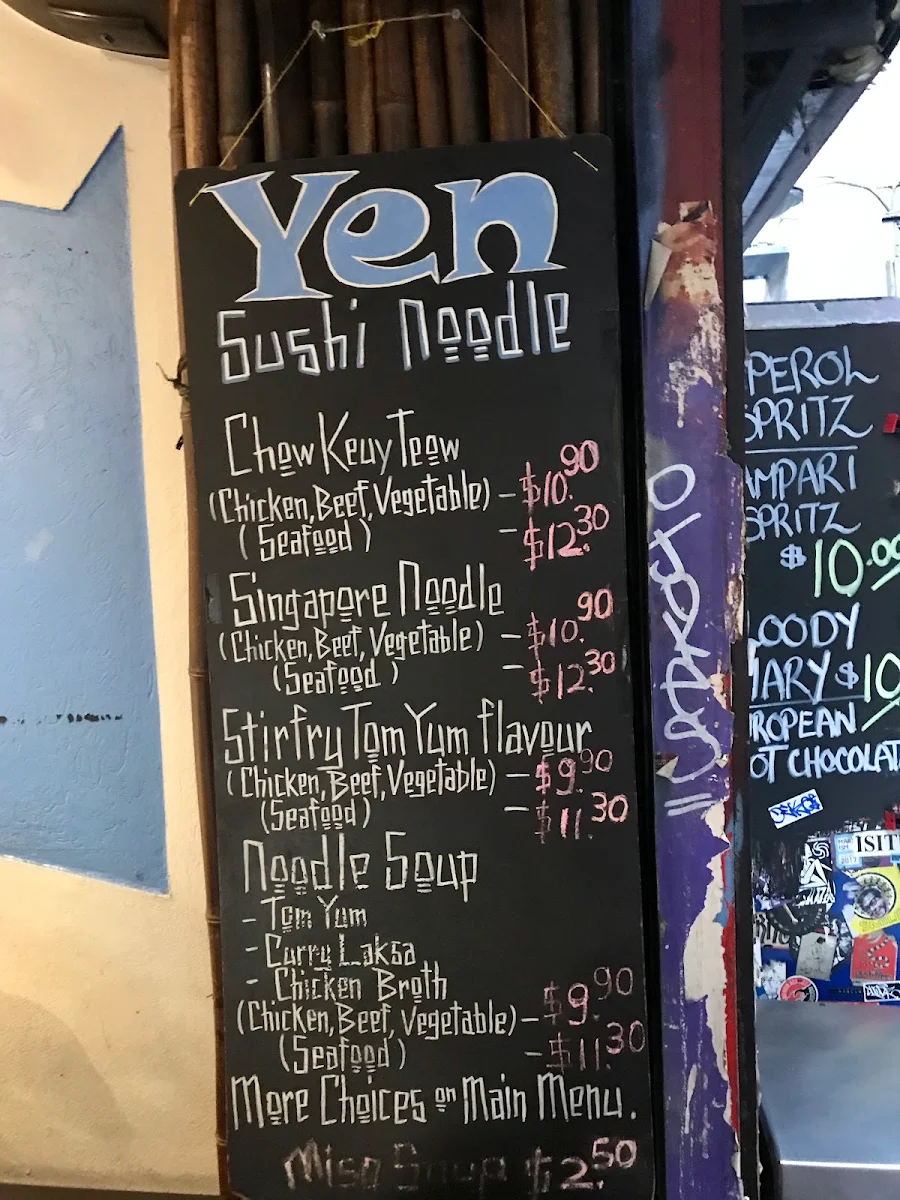 Yen
Sushi Noodle
Chow Keuy Teow
(Chicken, Beef, Vegetable) - $10.90
(Seafood) - $12.30
Singapore Noodle
(Chicken, Beef, Vegetable) - $10.90
(Seafood) - $12.30
Stirfry Tom Yum flavour
(Chicken, Beef, Vegetable) - $9.90
(Seafood) - $11.30
Noodle Soup
- Tom Yum
- Curry Laksa
- Chicken Broth
(Chicken, Beef, Vegetable) - $9.90
(Seafood) - $11.30
More Choices on Main Menu.
Miso Soup $2.50
PEROL
SPRITZ
AMPARI
SPRITZ
$10.00
LOODY
MARY $10
ROPEAN
OT CHOCOLAT
ISIT